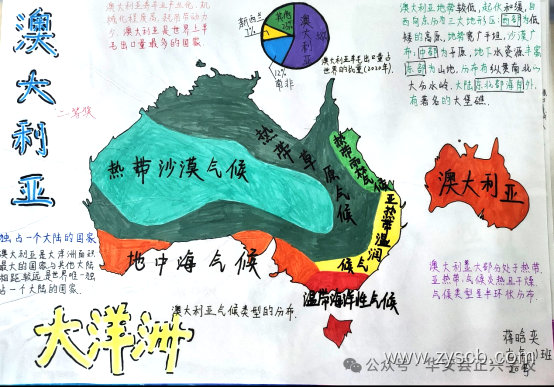 澳大利亚
澳大利亚养羊专业化、机
械化程度高,
澳大利亚是世界上羊
毛出口量最多的国家
新西兰
1%
其他
澳大利亚
12%
南非
澳大利亚羊毛出口量占
世界的比重(2020年)
澳大利亚地势较低,起伏和缓,自
西向东分为三大地形区:西部为低
矮的高原,地势宽广平坦,沙漠广
布;中部为平原,地下水资源丰富
东部为山地,分布有纵贯南北
大分水岭,大陆东北部海岸外,
有著名的大堡礁。
热带沙漠气候
热带草原气候
热带雨林气候
亚热带湿润
气候
地中海气候
温带海洋性气候
澳大利亚
独占一个大陆的国家
澳大利亚是大洋洲面积
最大的国家与其他大陆
相距较远是世界唯一独
占一个大陆的国家
澳大利亚气候类型的分布
大洋洲
澳大利亚大部分处于热带、
亚热带,气候炎热且干燥,
气候类型呈半环状分布.
公众号
www.zyscb.com